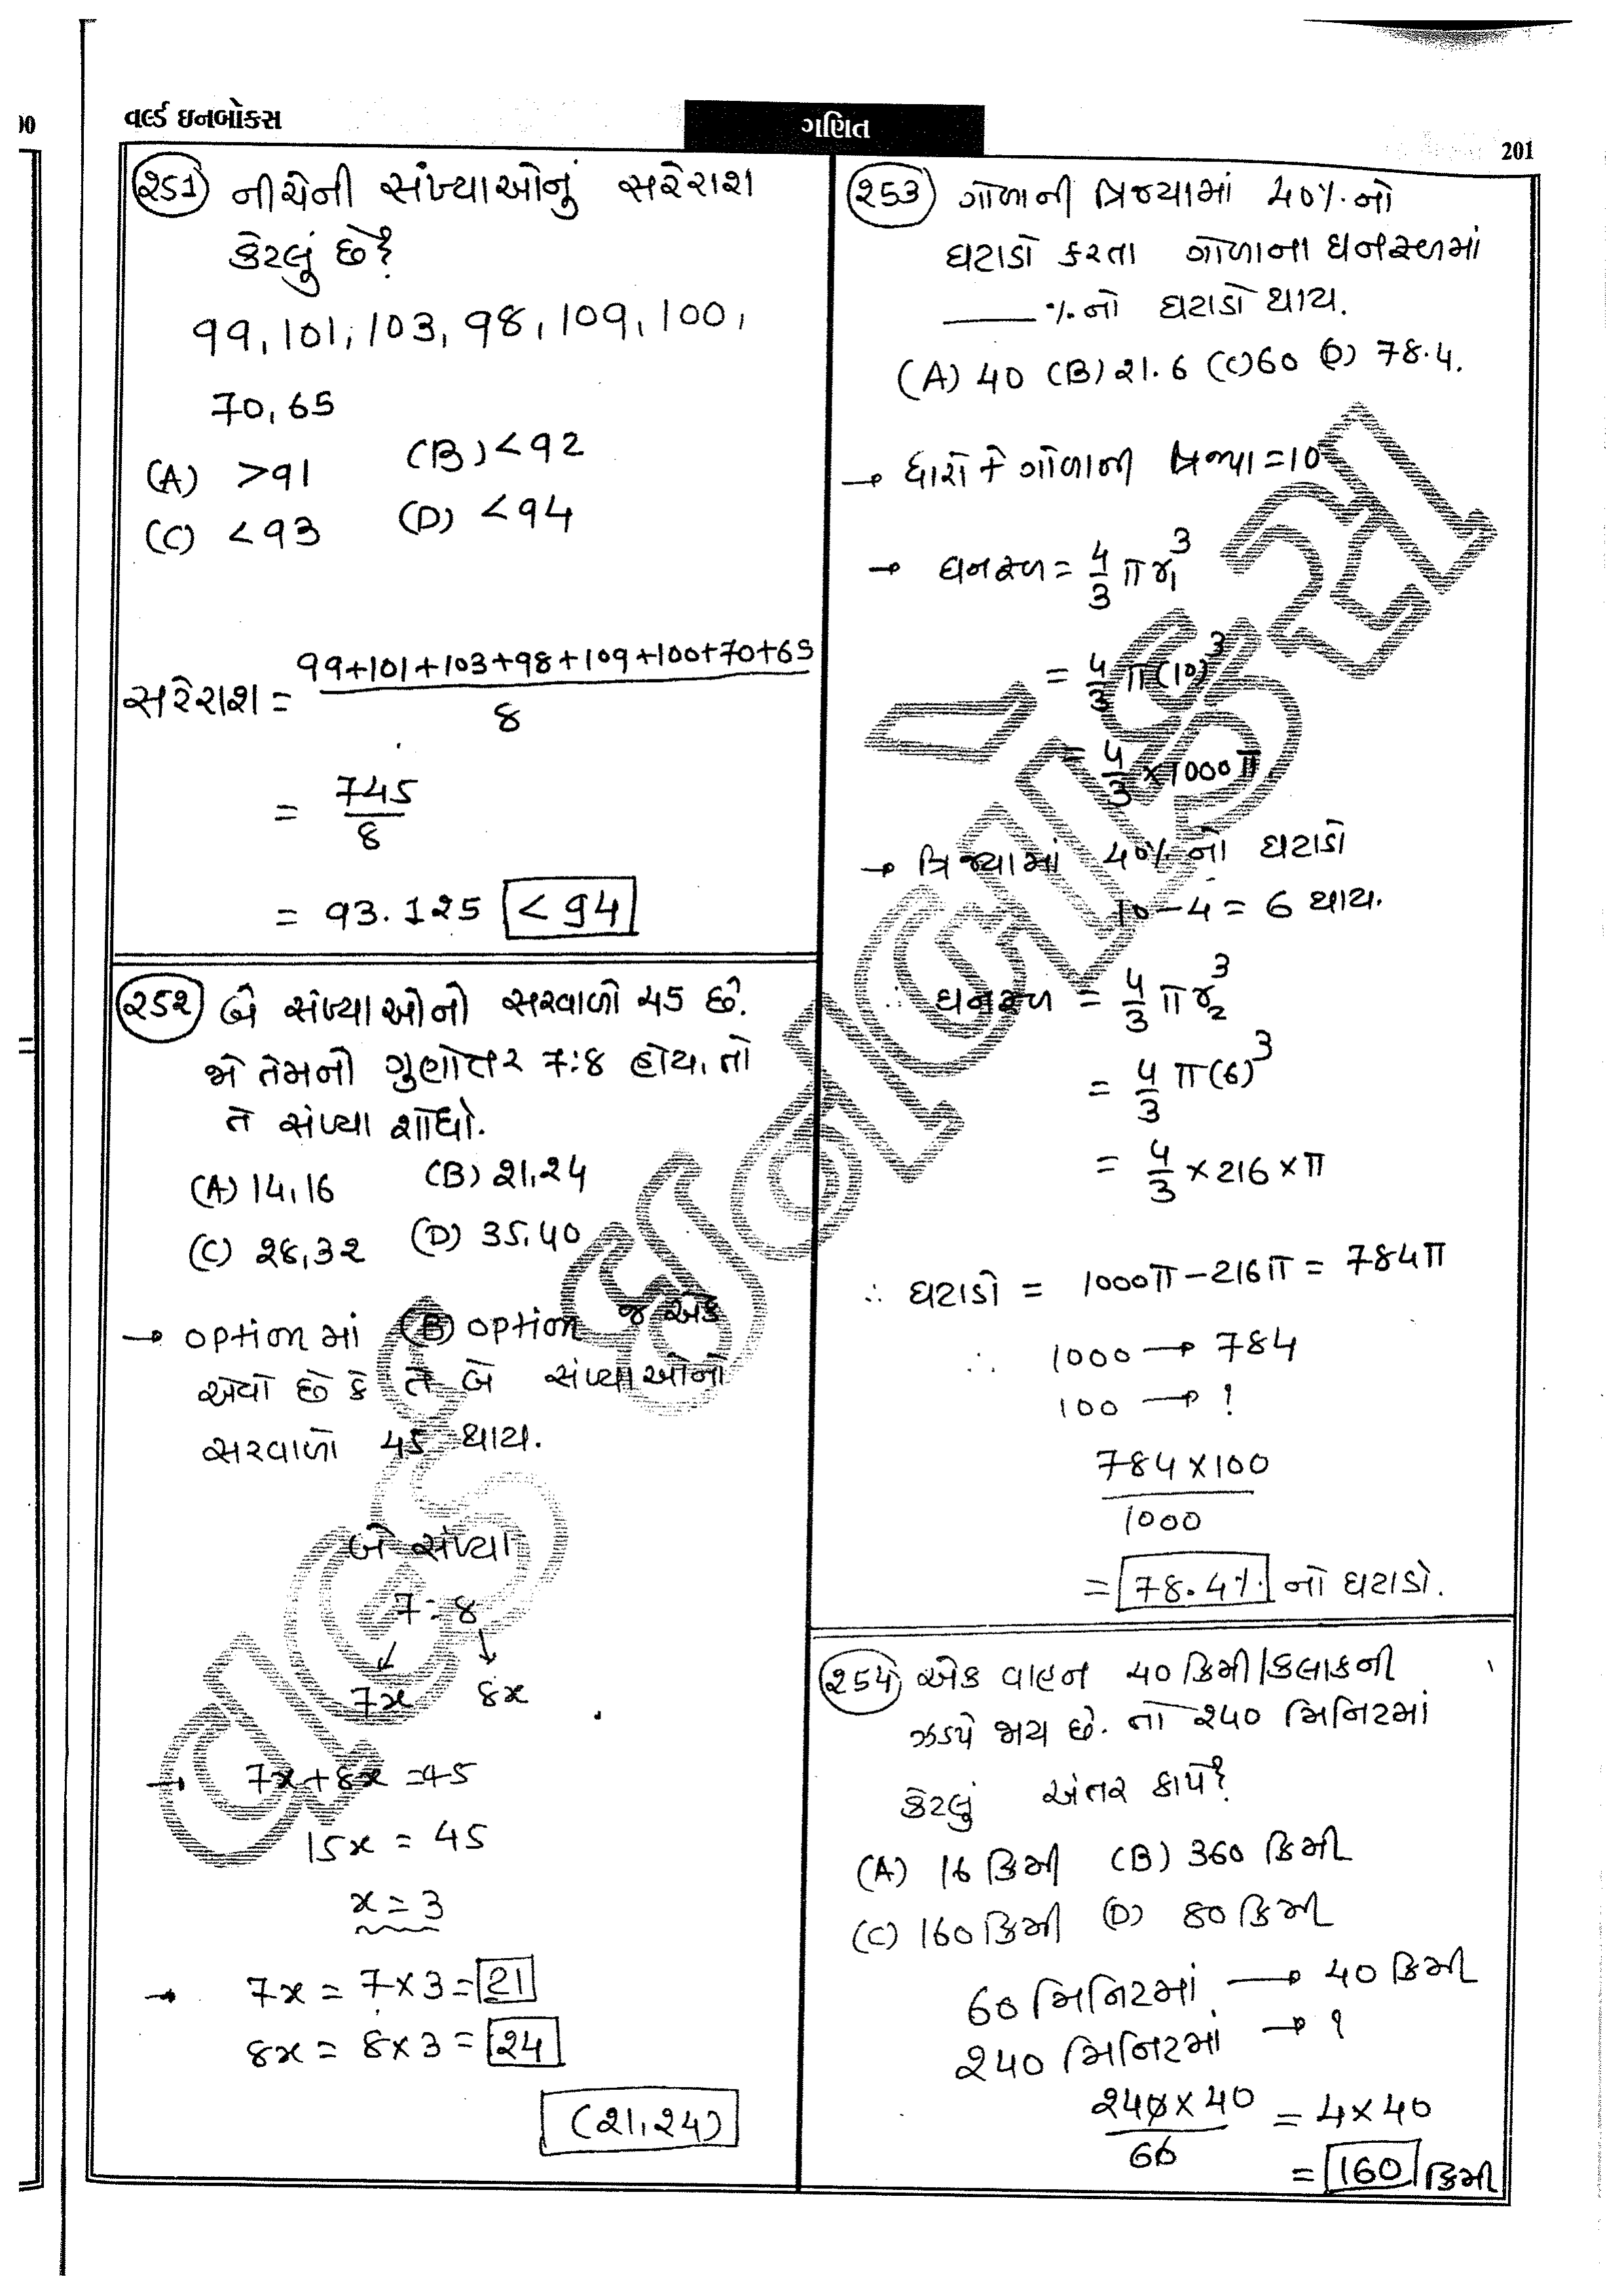 00
વર્લ્ડ ઇનબોક્સ
ગણિત
201
૨51 નીચેની સંખ્યાઓનું સરેરાશ
કેટલું છે?
99, 101, 103, 98, 109, 100,
70, 65
(A) >91 (B) <92
(C) <93 (D) <94
સરેરાશ = 99+101+103+98+109+100+70+65
8
= 745
8
= 93.1૨5 < 94
૨5૨ બે સંખ્યાઓનો સરવાળો 45 છે.
જો તેમનો ગુણોત્તર 7:8 હોય, તો
તે સંખ્યા શોધો.
(A) 14, 16 (B) ૨1, ૨4
(C) ૨8, 3૨ (D) 35, 40
→ option માં (B) option જ એક
એવો છે કે તે બે સંખ્યાઓનો
સરવાળો 45 થાય.
બે સંખ્યા
7:8
7x 8x
→ 7x+8x = 45
15x = 45
x = 3
→ 7x = 7×3 = 21
8x = 8×3 = ૨4
(૨1, ૨4)
૨53 ગોળાની ત્રિજ્યામાં 40% નો
ઘટાડો કરતા ગોળાના ઘનફળમાં
____ % નો ઘટાડો થાય.
(A) 40 (B) ૨1.6 (C) 60 (D) 78.4.
→ ધારો કે ગોળાની ત્રિજ્યા = 10
→ ઘનફળ = 4/3 π r₁³
= 4/3 π (10)³
= 4/3 × 1000 π
→ ત્રિજ્યામાં 40% નો ઘટાડો
10 − 4 = 6 થાય.
∴ ઘનફળ = 4/3 π r₂³
= 4/3 π (6)³
= 4/3 × 216 × π
∴ ઘટાડો = 1000π − 216π = 784π
∴ 1000 → 784
100 → ?
784 × 100
1000
= 78.4% નો ઘટાડો.
૨54 એક વાહન 40 કિમી/કલાકની
ઝડપે જાય છે. તો ૨40 મિનિટમાં
કેટલું અંતર કાપે?
(A) 16 કિમી (B) 360 કિમી
(C) 160 કિમી (D) 80 કિમી
60 મિનિટમાં → 40 કિમી
૨40 મિનિટમાં → ?
૨40 × 40 = 4 × 40
60
= 160 કિમી